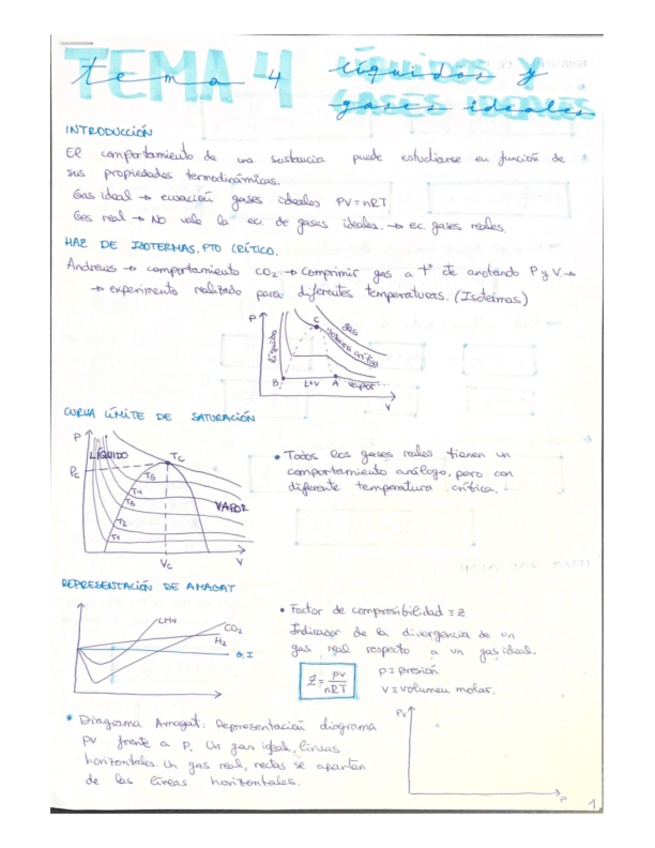 TEMA 4 LÍQUIDOS Y
tema 4 líquidos y
GASES IDEALES
gases ideales
INTRODUCCIÓN
El comportamiento de una sustancia puede estudiarse en función de
sus propiedades termodinámicas.
Gas ideal → ecuación gases ideales PV=nRT
Gas real → No vale la ec. de gases ideales. → ec. gases reales.
HAZ DE ISOTERMAS. PTO CRÍTICO.
Andrews → comportamiento CO₂ → Comprimir gas a Tº cte anotando P y V →
→ experimento realizado para diferentes temperaturas. (Isotermas)
P
C
gas
isoterma crítica
líquido
B
L+V
A
vapor
V
CURVA LÍMITE DE SATURACIÓN
P
LÍQUIDO
TC
PC
T5
T4
T3
VAPOR
T2
T1
VC
V
• Todos los gases reales tienen un
comportamiento análogo, pero con
diferente temperatura crítica.
REPRESENTACIÓN DE AMAGAT
CH4
CO2
H2
G.I
• Factor de compresibilidad ≡ Z
Indicador de la divergencia de un
gas real respecto a un gas ideal.
Z = PV/nRT
P ≡ presión
V ≡ volumen molar.
• Diagrama Amagat: Representación diagrama
PV frente a P. Un gas ideal, líneas
horizontales. Un gas real, rectas se apartan
de las líneas horizontales.
PV
P
1